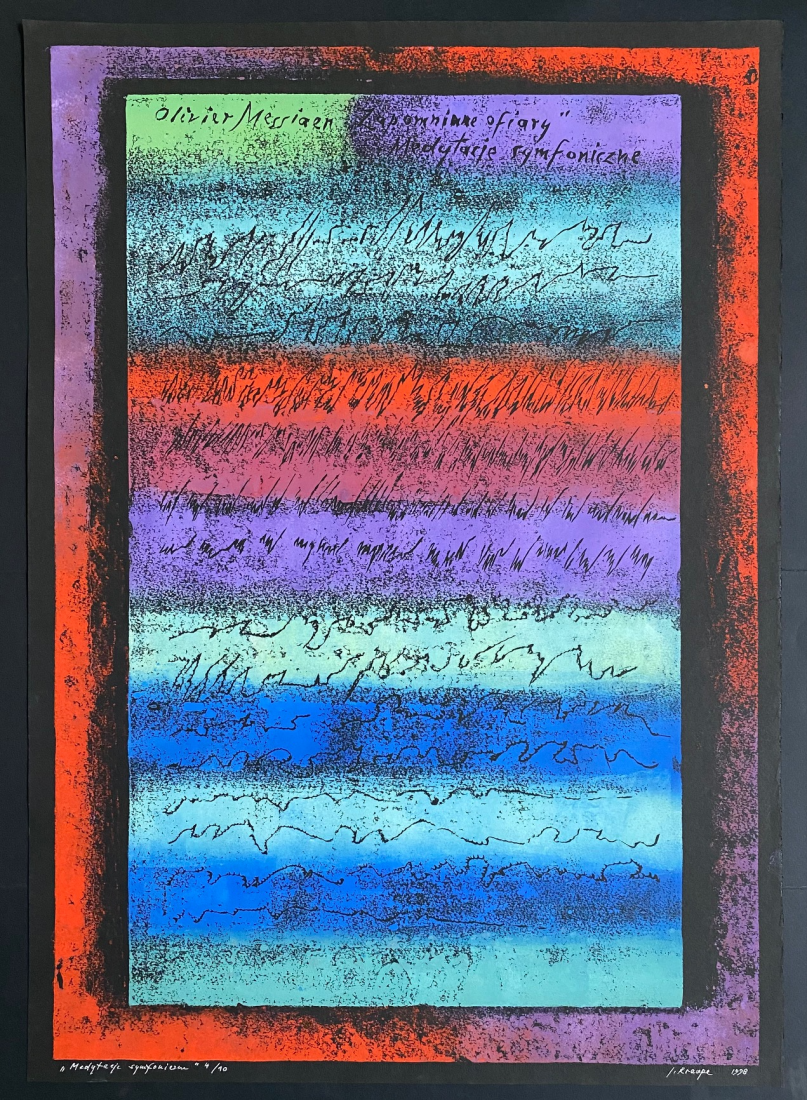 Olivier Messiaen „Zapomniane ofiary"
Medytacje symfoniczne
„Medytacje symfoniczne" 4/10
J. Kraupe 1998